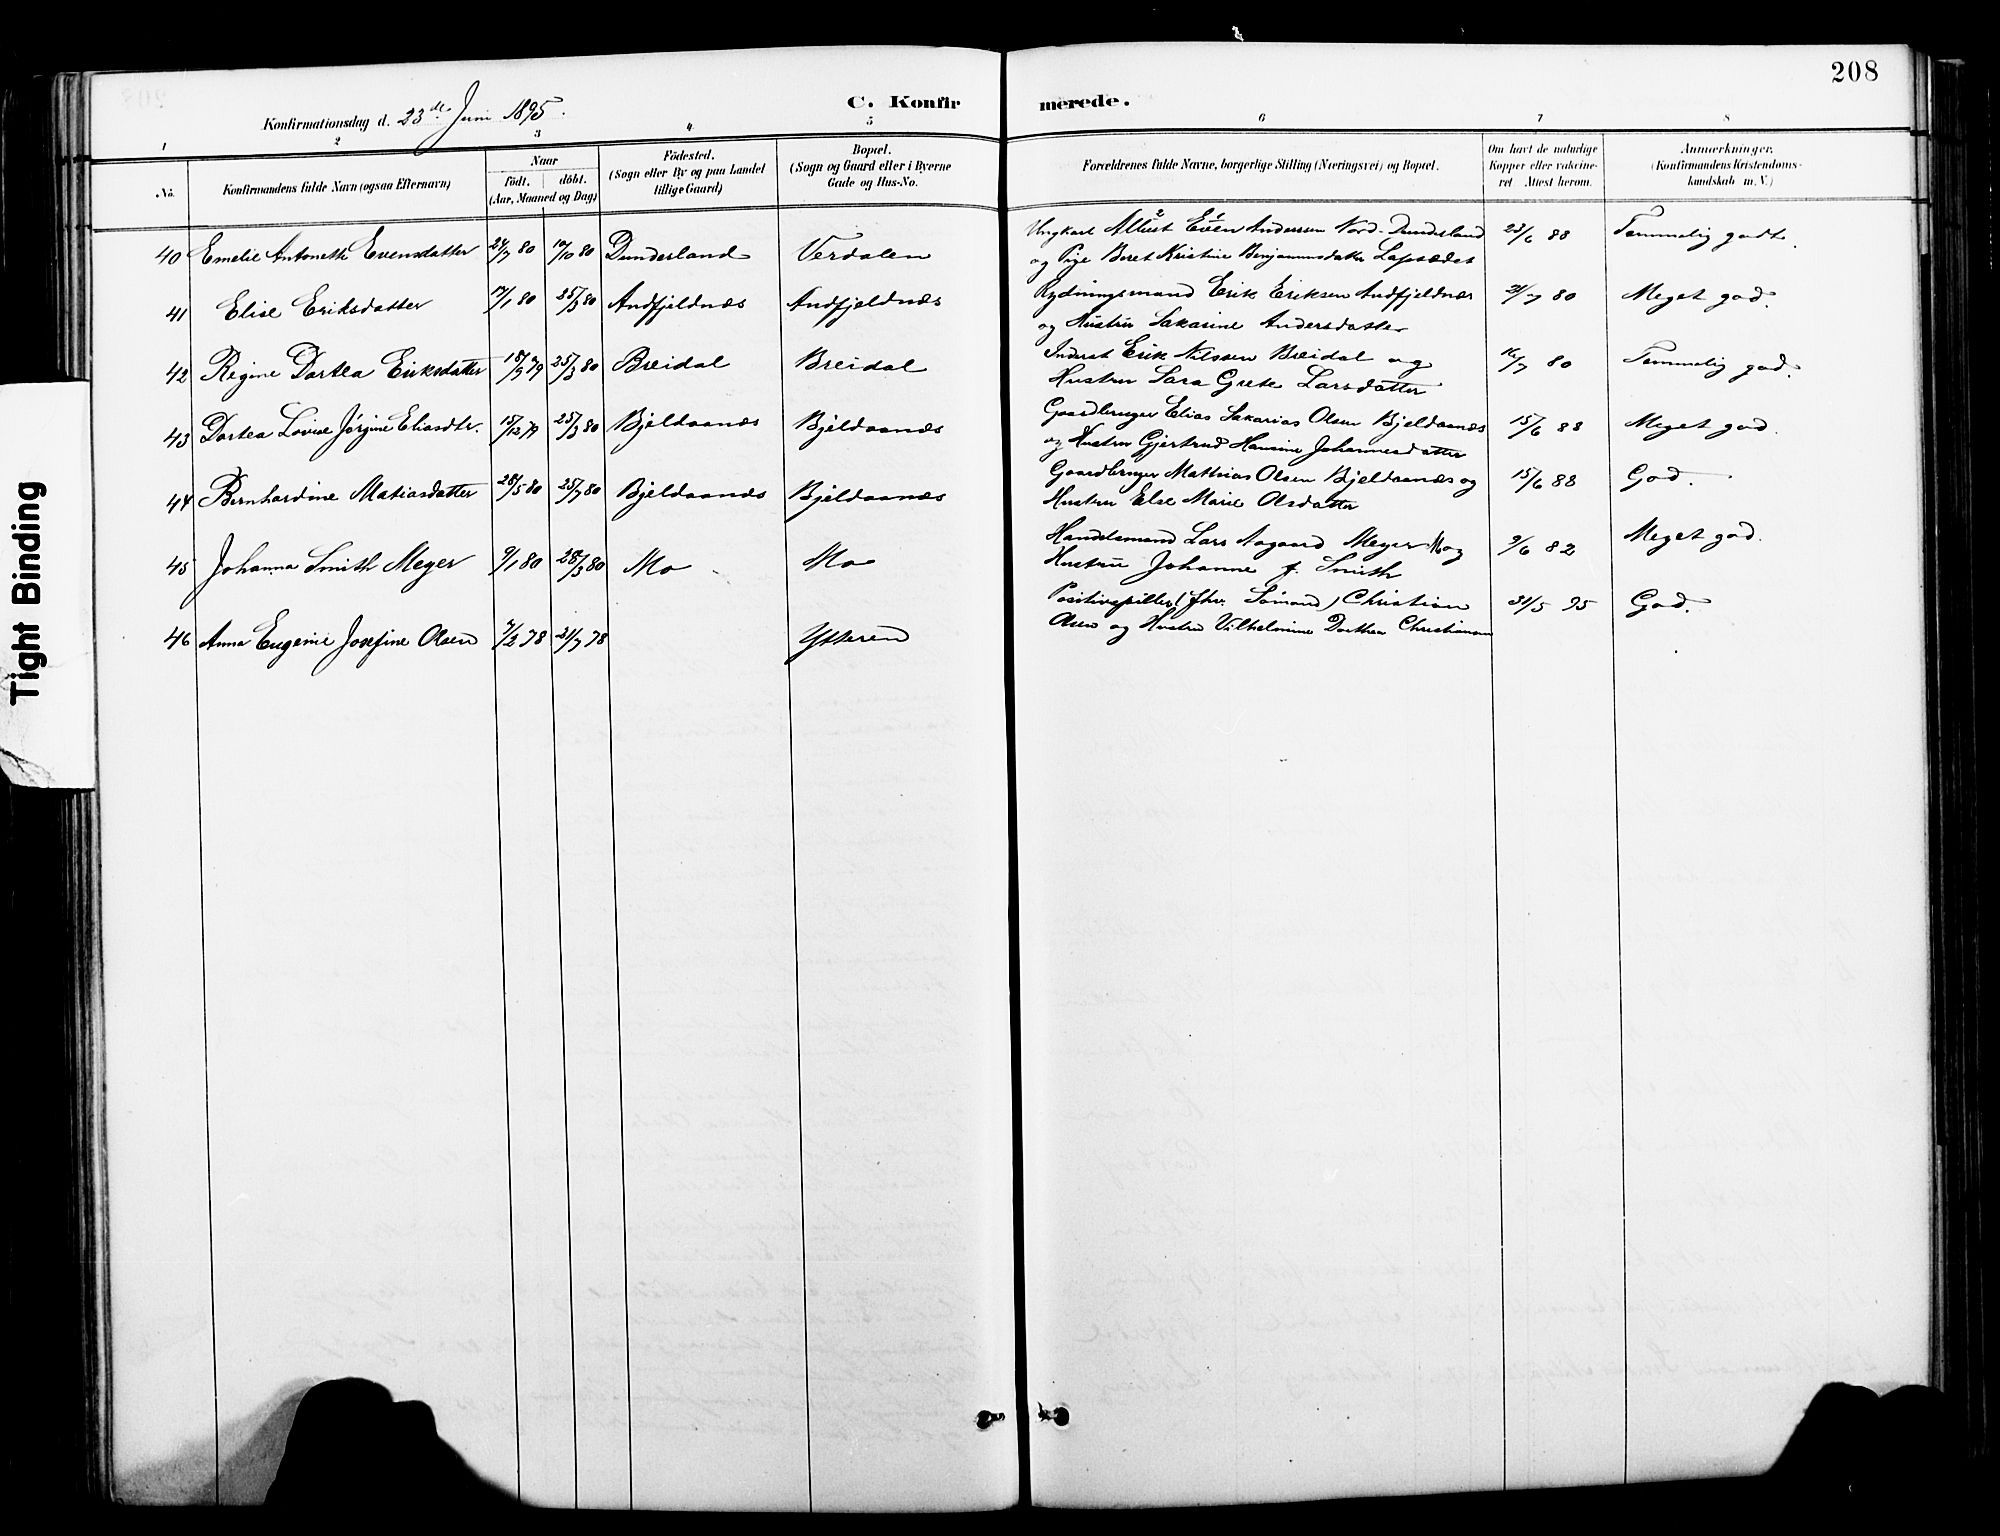 208
Konfirmationsdag d. 23de Juni 1895.
C. Konfirmerede.
1 2 3 4 5 6 7 8
No.
Konfirmandens fulde Navn (ogsaa Efternavn)
Naar
födt. döbt.
(Aar, Maaned og Dag)
Födested.
(Sogn eller By og paa Landet
tillige Gaard)
Bopæl.
(Sogn og Gaard eller i Byerne
Gade og Hus-No.
Forældrenes fulde Navne, borgerlige Stilling (Næringsvei) og Bopæl.
Om havt de naturlige
Kopper eller vakcine-
ret Attest herom.
Anmærkninger.
(Konfirmandens Kristendoms-
kundskab m. V.)
40 Emelie Antonette Evensdatter 24/7 80 10/10 80 Dunderland Verdalen
Ungkarl Albert Even Andersen Nord-Dunderland 23/6 88 Temmelig godt.
og Pige Beret Kristine Benjaminsdatter
41 Elise Eriksdatter 17/1 80 25/3 80 Andfjeldnæs Andfjeldnæs
Rydningsmand Erik Eriksen Andfjeldnæs 21/7 80 Meget god.
og Hustru Sakarine Andersdatter
42 Regine Dortea Eriksdatter 18/9 79 25/3 80 Breidal Breidal
Inderst Erik Nilssen Breidal og 16/7 80 Temmelig god.
Hustru Sara Grete Larsdatter
43 Dortea Lovise Jørgine Eliasdtr. 15/12 79 25/3 80 Bjeldaanæs Bjeldaanæs
Gaardbruger Elias Sakarias Olsen Bjeldaanæs 15/6 88 Meget god.
og Hustru Gjertrud Hansine Johannesdatter
44 Bernhardine Matiasdatter 28/5 80 25/7 80 Bjeldaanæs Bjeldaanæs
Gaardbruger Mathias Olsen Bjeldaanæs og 15/6 88 God.
Hustru Else Marie Olsdatter
45 Johanna Smith Meyer 9/1 80 28/3 80 Mo Mo
Handelsmand Lars Aagaard Meyer Mo og 9/6 82 Meget god.
Hustru Johanne f. Smith
46 Anna Eugenie Josefine Olsen 7/2 78 21/7 78 Ytteren
Positivspiller (fhv. Sømand) Christian 31/5 95 God.
Olsen og Hustru Vilhelmine Dorthea Christiansen
Tight Binding